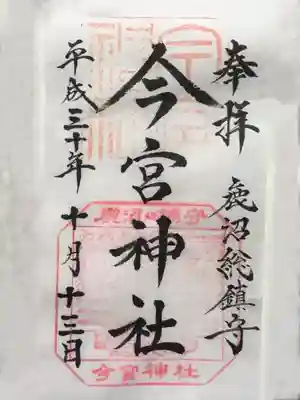 奉拝
鹿沼総鎮守
今宮神社
平成三十年 十月 十三日
今宮神社